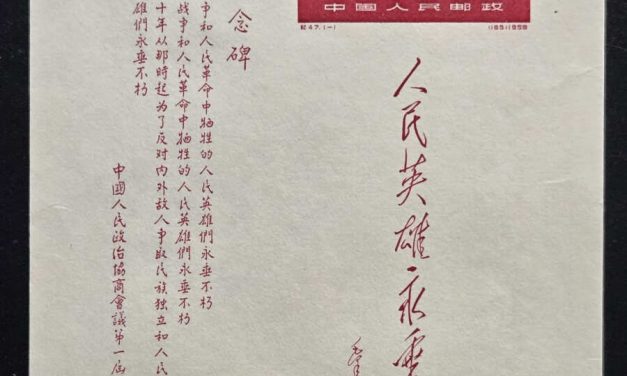 中國人民邮政
紀47.(一)
(165)1958
人民英雄永垂
念碑
争和人民革命中牺牲的人民英雄們永垂不朽
战争和人民革命中牺牲的人民英雄們永垂不朽
十年从那時起为了反对内外敌人争取民族独立和人民
雄們永垂不朽
中國人民政治協商會議第一屆